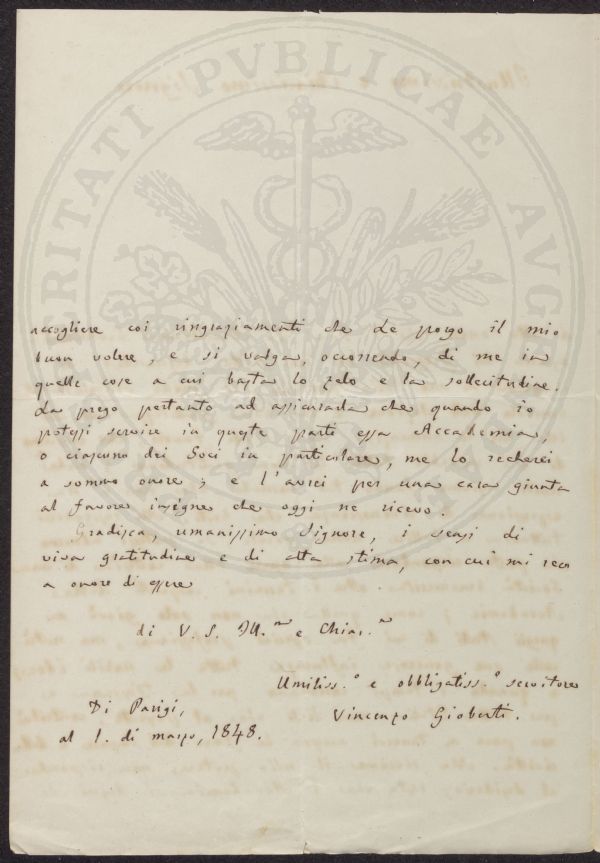 VERITATI PVBLICAE AVG
accogliere coi ringraziamenti che Le porgo il mio
buon volere, e si valga, occorrendo, di me in
quelle cose a cui basta lo zelo e la sollecitudine.
La prego pertanto ad assicurarla che quando io
potessi servire in queste parti essa Accademia,
o ciascuno dei Soci in particolare, me lo recherei
a sommo onore; e l'avrei per una cara giunta
al favore insigne che oggi ne ricevo.
Gradisca, umanissimo Signore, i sensi di
viva gratitudine e di alta stima, con cui mi reco
a onore di essere
di V. S. Ill.ma e Chiar.ma
Umiliss.o e obbligatiss.o servitore
Vincenzo Gioberti.
Di Parigi,
al 1. di marzo, 1848.